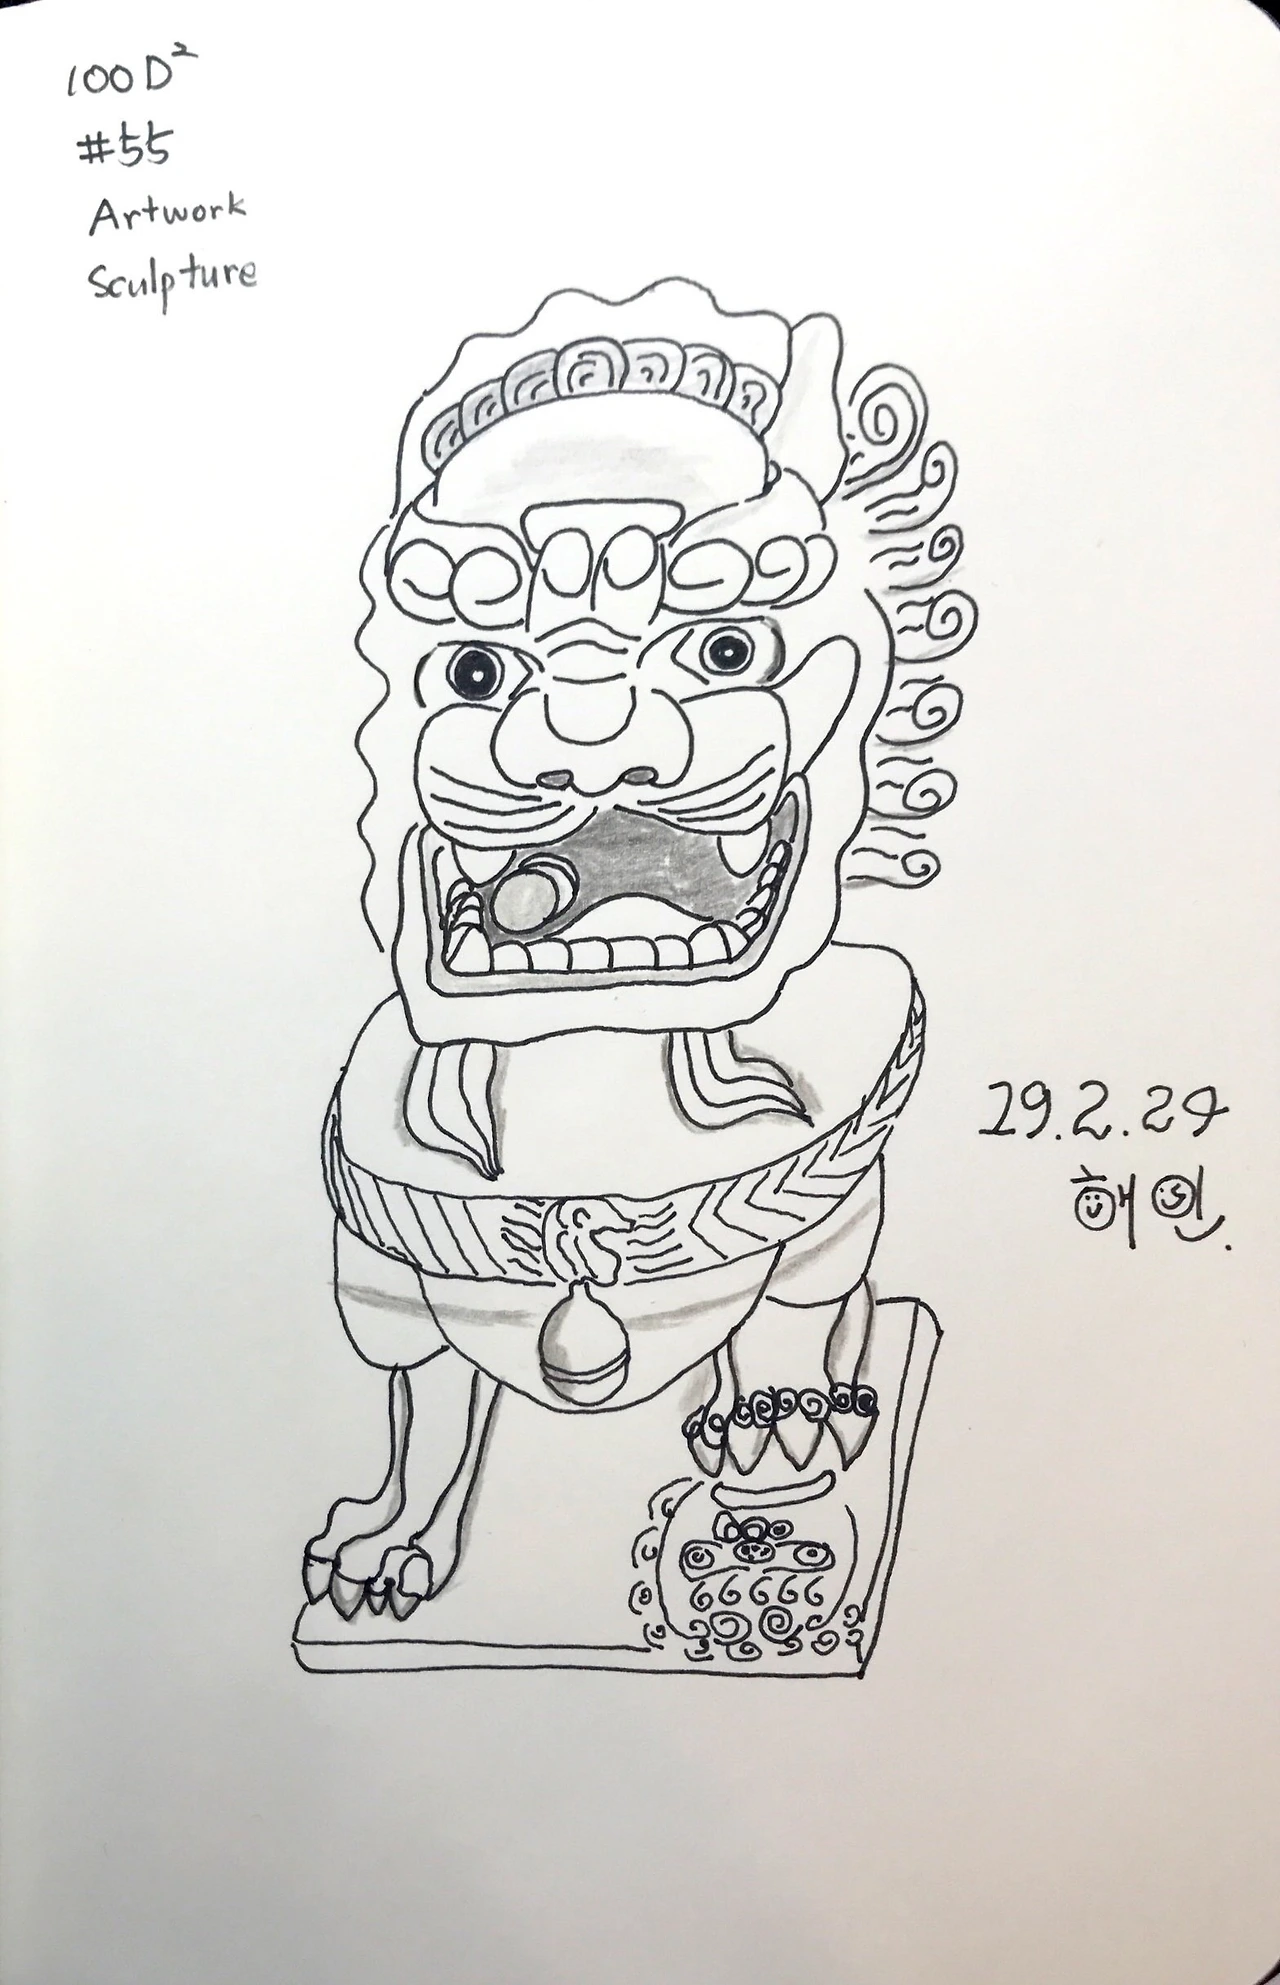 100D²
#55
Artwork
Sculpture
19.2.24
해원.